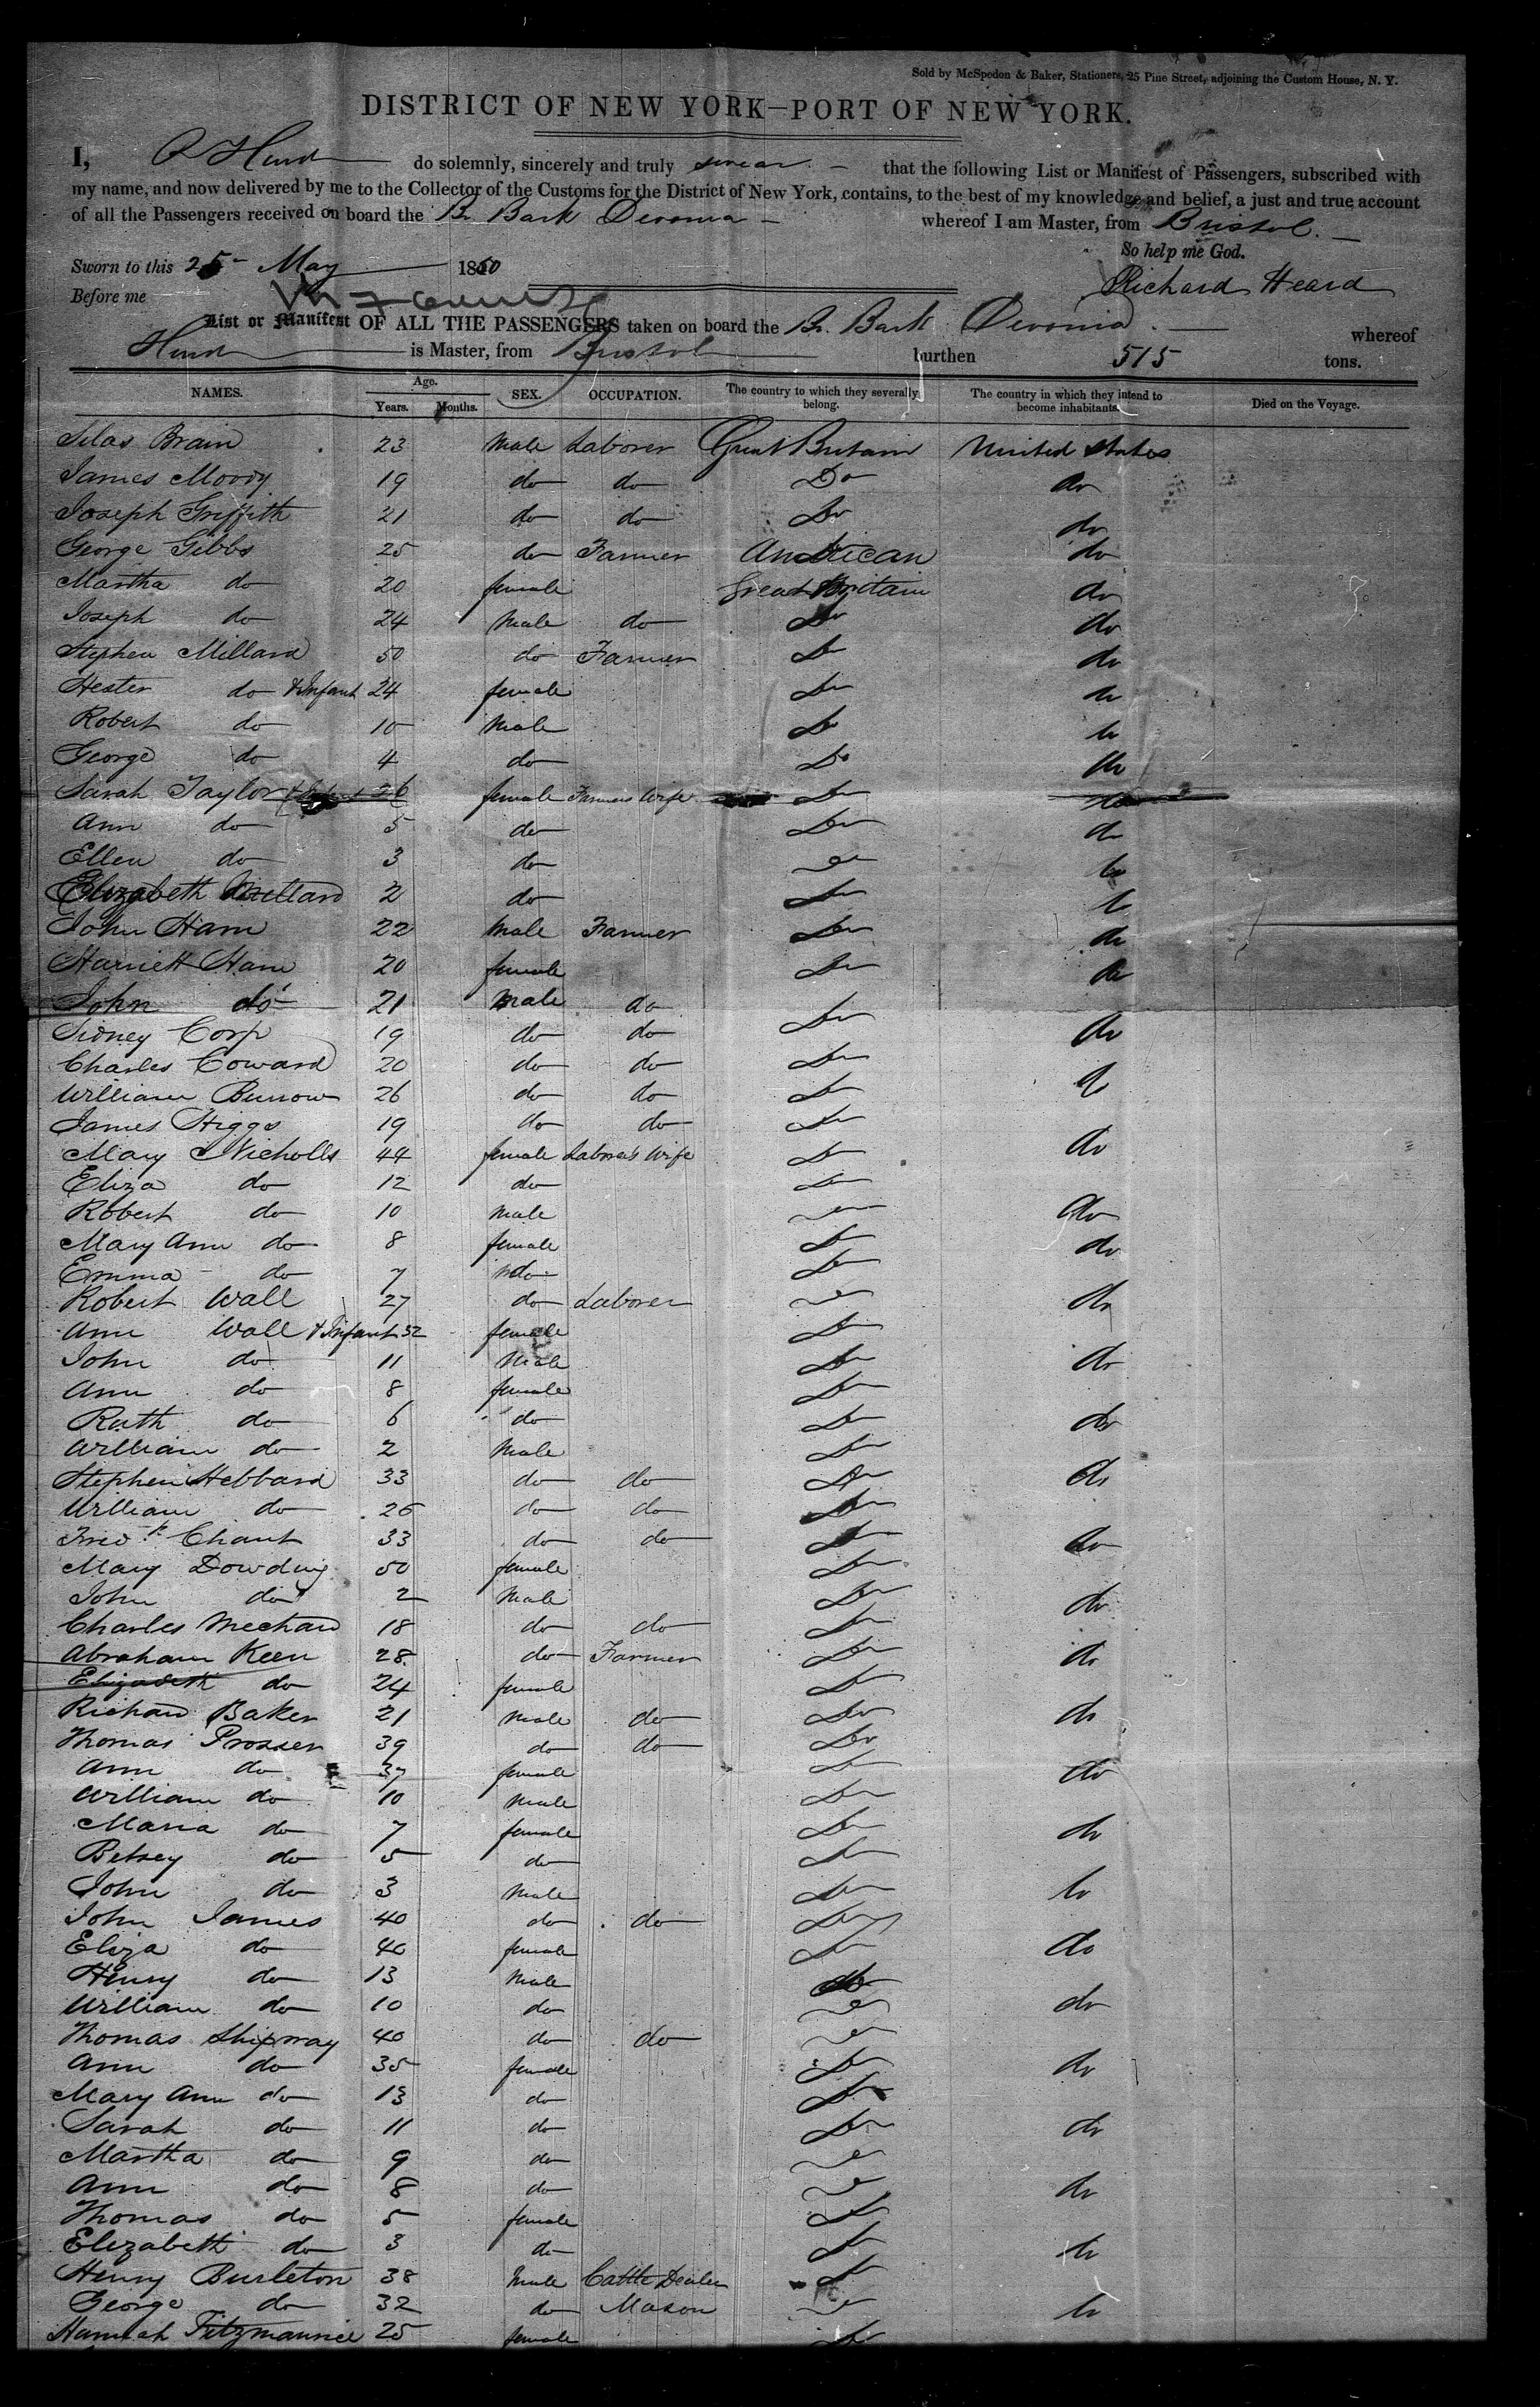 Sold by McSpedon & Baker, Stationers, 25 Pine Street, adjoining the Custom House, N. Y.
DISTRICT OF NEW YORK—PORT OF NEW YORK.
I, do solemnly, sincerely and truly swear that the following List or Manifest of Passengers, subscribed with
my name, and now delivered by me to the Collector of the Customs for the District of New York, contains, to the best of my knowledge and belief, a just and true account
of all the Passengers received on board the Br Bark Devonia whereof I am Master, from Bristol.
So help me God.
Sworn to this 25 May 1850
Richard Heard
Before me
List or Manifest OF ALL THE PASSENGERS taken on board the Br. Bark Devonia. whereof
is Master, from Bristol burthen 515 tons.
NAMES. Age. Years. Months. SEX. OCCUPATION. The country to which they severally belong. The country in which they intend to become inhabitants. Died on the Voyage.
Silas Brain 23 Male Laborer Great Britain United States
James Moody 19 do do Do do
Joseph Griffith 21 do do Do do
George Gibbs 25 do Farmer American do
Martha do 20 female Great Britain do
Joseph do 24 Male do Do do
Stephen Millard 50 do Farmer Do do
Hester do & Infant 24 female Do do
Robert do 10 Male Do do
George do 4 do Do do
Sarah Taylor 26 female Farmers Wife Do do
Ann do 5 do Do do
Ellen do 3 do Do do
Elizabeth Millard 2 do Do do
John Ham 22 Male Farmer Do do
Harriett Ham 20 female Do do
John do 21 Male do Do
Sidney Corp 19 do do do
Charles Coward 20 do do Do
William Burrow 26 do do Do do
James Higgs 19 do do Do
Mary Nicholls 44 female Laborer's Wife Do do
Eliza do 12 do Do
Robert do 10 Male Do do
Mary Ann do 8 female Do do
Emma do 7 do Do
Robert Wall 27 do Laborer Do do
Ann Wall & Infant 32 female Do
John do 11 Male Do do
Ann do 8 female Do
Ruth do 6 do Do do
William do 2 Male Do
Stephen Hebbard 33 do do Do do
William do 26 do do Do
Fredk Chant 33 do do Do do
Mary Dowding 50 female Do
John do 2 Male Do do
Charles Mechan 18 do do Do
Abraham Keen 28 do Farmer Do do
Elizabeth do 24 female Do
Richard Baker 21 Male do Do do
Thomas Prosser 39 do do Do
Ann do 37 female Do do
William do 10 Male Do
Maria do 7 female Do do
Betsey do 5 do Do
John do 3 Male Do do
John James 40 do do Do
Eliza do 40 female Do do
Henry do 13 Male do
William do 10 do Do do
Thomas Shipway 40 do do Do
Ann do 35 female Do do
Mary Ann do 13 do Do
Sarah do 11 do Do do
Martha do 9 do Do
Ann do 8 do Do do
Thomas do 5 female Do
Elizabeth do 3 do Do do
Henry Burleton 38 Male Cattle Dealer Do
George do 32 do Mason Do do
Hannah Fitzmaurice 25 female Do